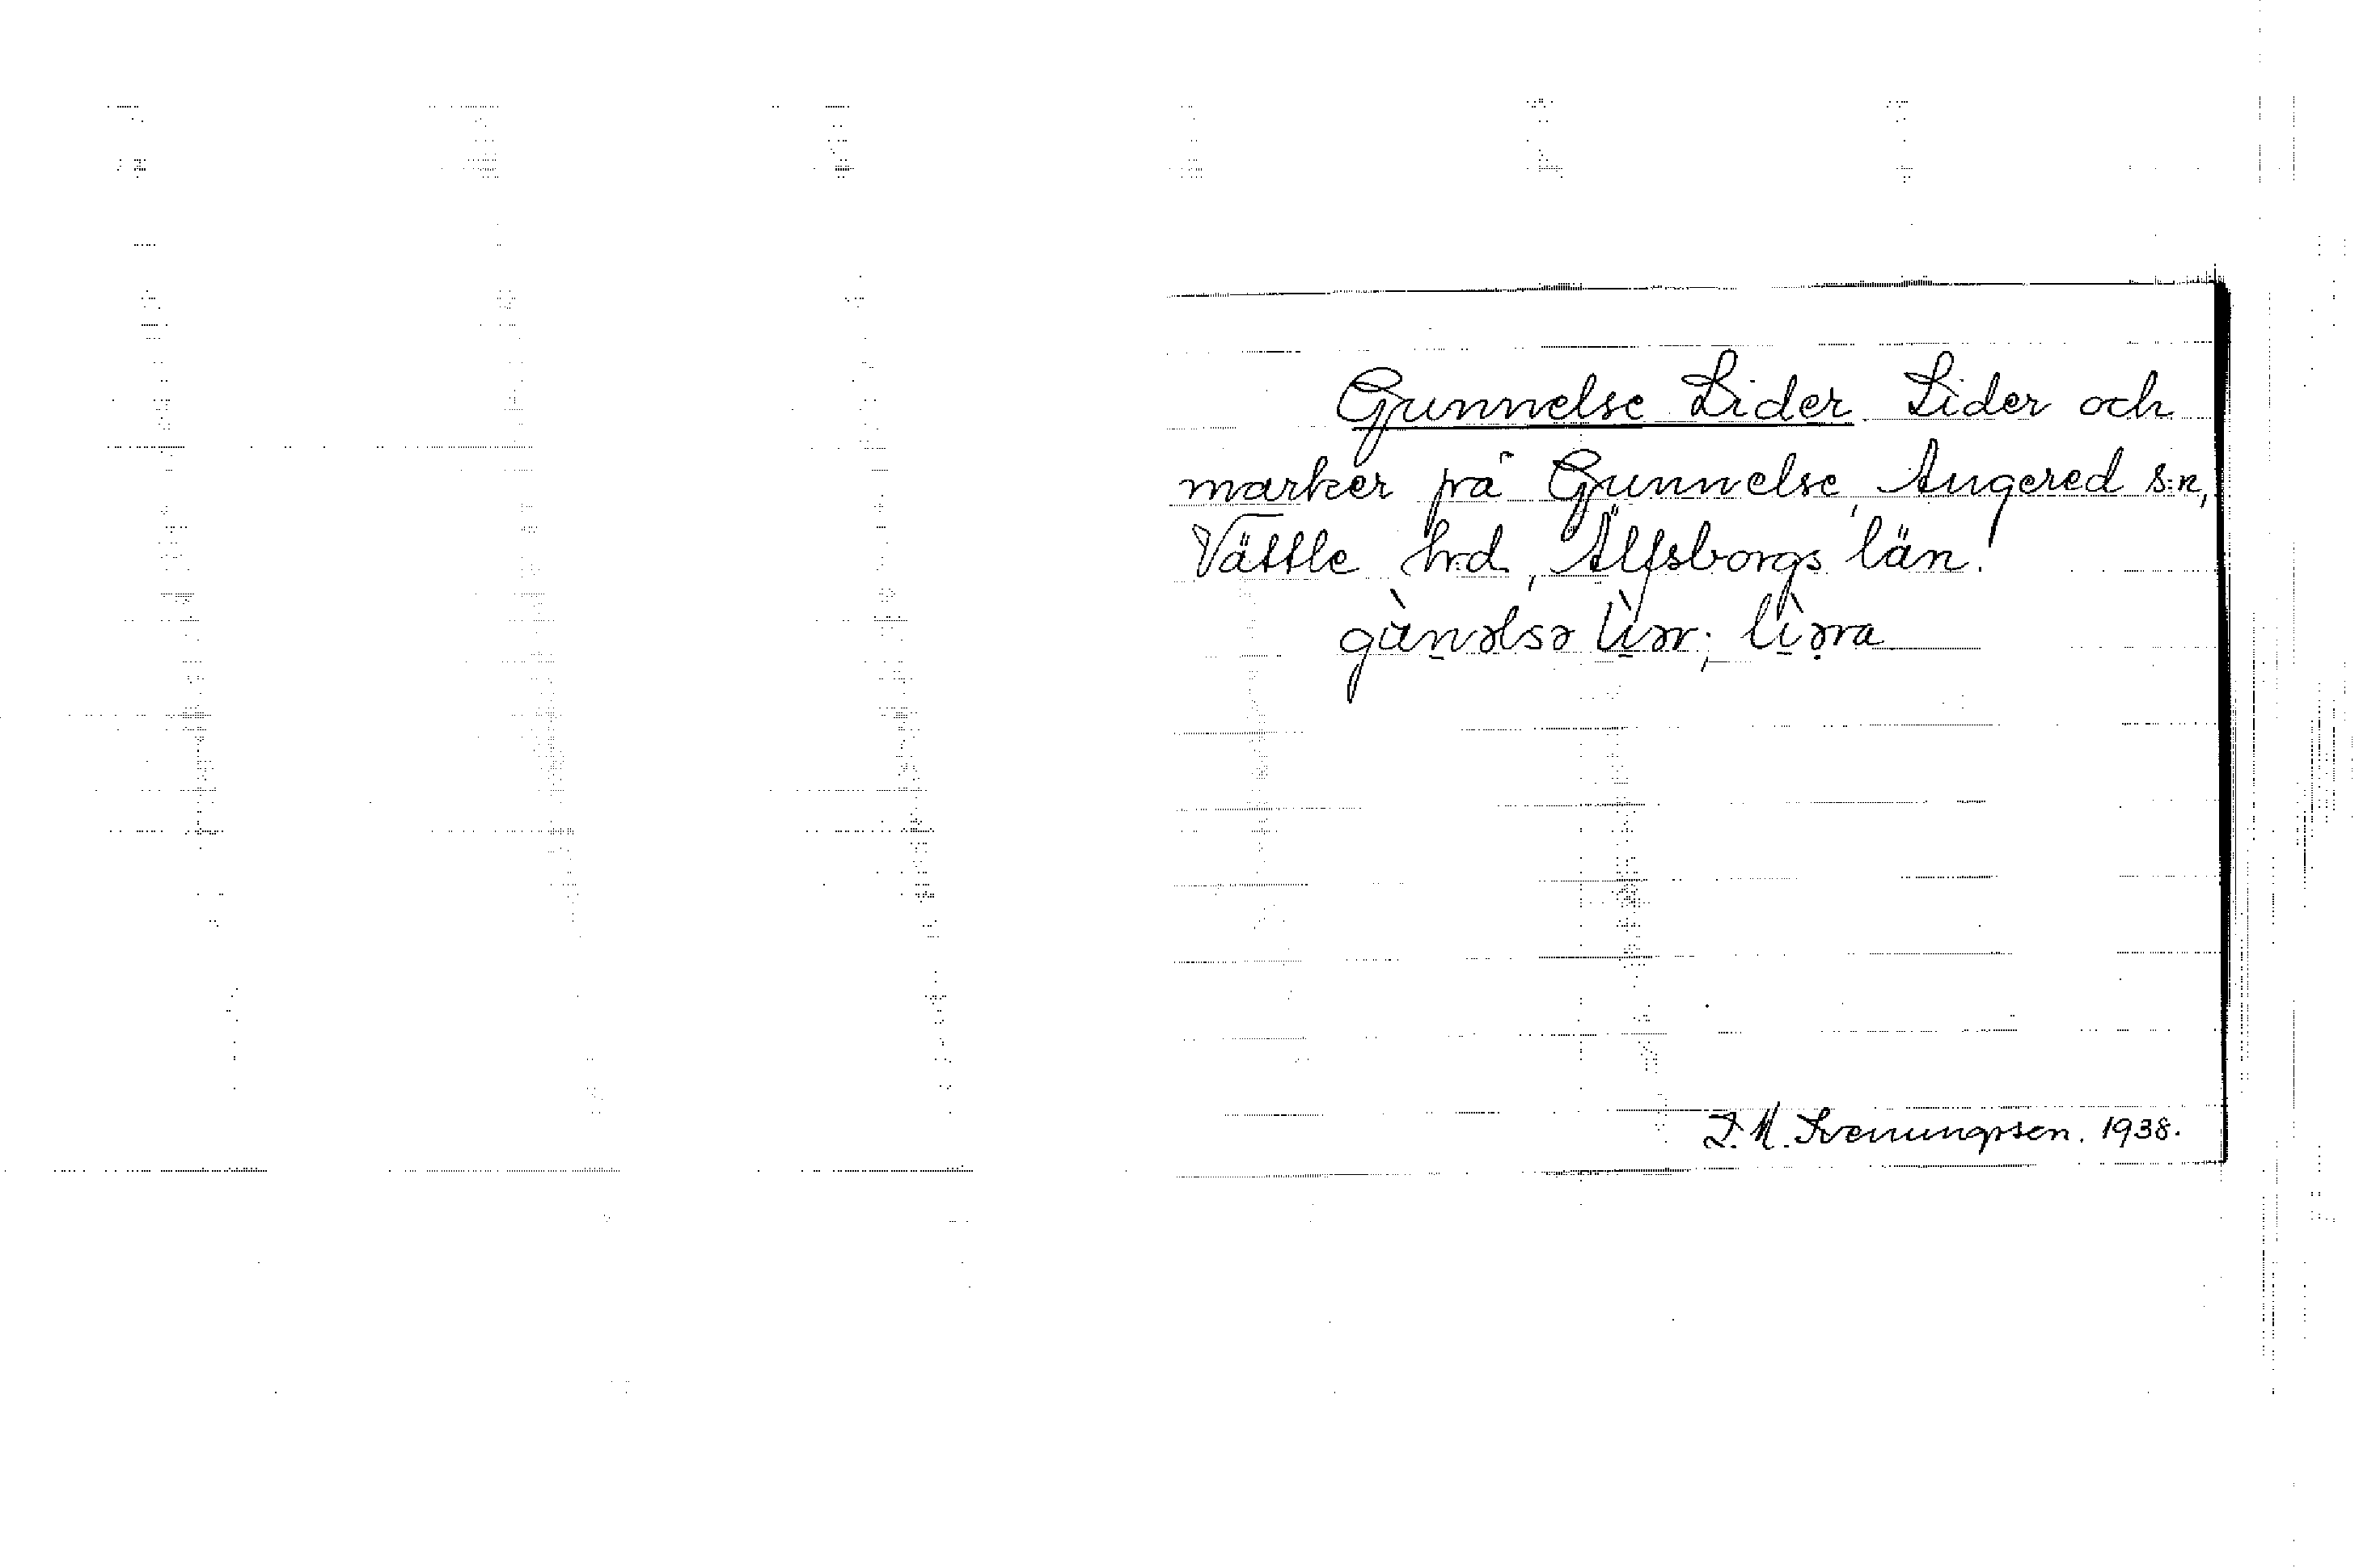 Gunnelse Lider. Lider och
marker på Gunnelse, Angered s:n,
Vättle h:d, Älfsborgs län.
gùnəlsə lìər; lìəra
D. M. Svenungssen. 1938.